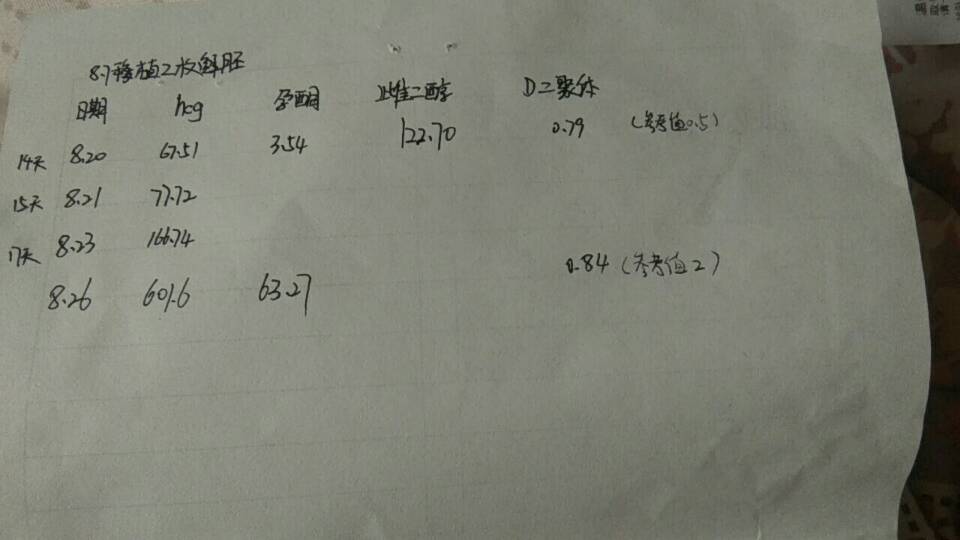 8.7移植2枚鲜胚
日期 hcg 孕酮 雌二醇 D二聚体
14天 8.20 67.51 3.54 122.70 0.79 (参考值0.5)
15天 8.21 77.72
17天 8.23 166.74
8.26 601.6 63.27 0.84 (参考值2)